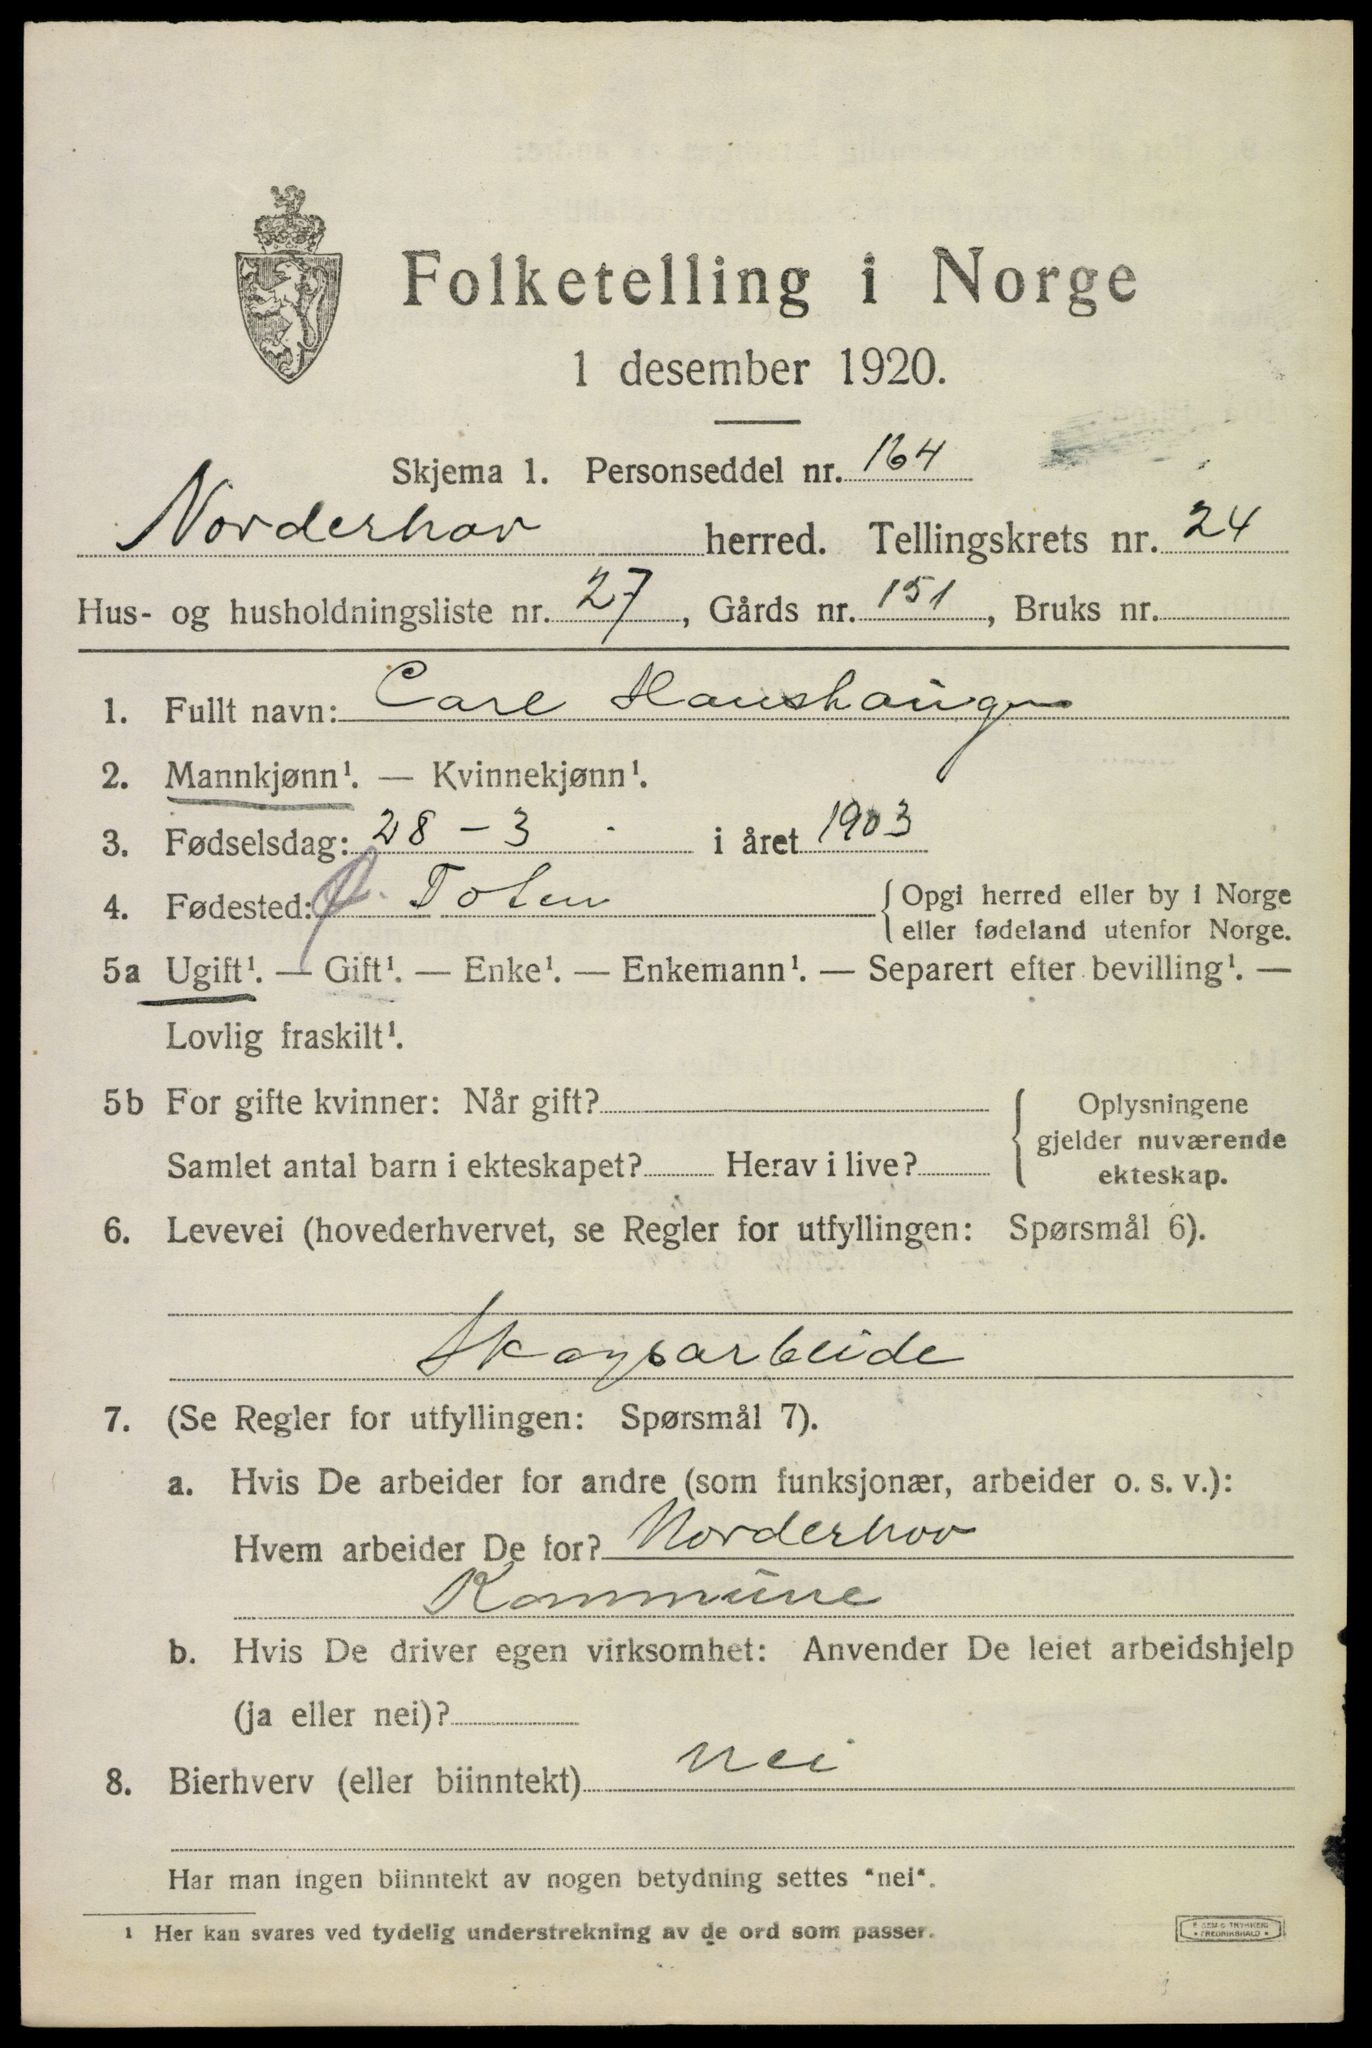 Folketelling i Norge
1 desember 1920.
Skjema 1. Personseddel nr. 164
Norderhov herred. Tellingskrets nr. 24
Hus- og husholdningsliste nr. 27, Gårds nr. 151, Bruks nr.
1. Fullt navn: Carl Haushaugen
2. Mannkjønn¹. — Kvinnekjønn¹.
3. Fødselsdag: 28 - 3 i året 1903
4. Fødested: Ø. Toten { Opgi herred eller by i Norge
eller fødeland utenfor Norge.
5a Ugift¹. — Gift¹. — Enke¹. — Enkemann¹. — Separert efter bevilling¹. —
Lovlig fraskilt¹.
5b For gifte kvinner: Når gift? { Oplysningene
gjelder nuværende
Samlet antal barn i ekteskapet? Herav i live? ekteskap.
6. Levevei (hovederhvervet, se Regler for utfyllingen: Spørsmål 6).
Skogsarbeide
7. (Se Regler for utfyllingen: Spørsmål 7).
a. Hvis De arbeider for andre (som funksjonær, arbeider o. s. v.):
Hvem arbeider De for? Norderhov
Kommune
b. Hvis De driver egen virksomhet: Anvender De leiet arbeidshjelp
(ja eller nei)?
8. Bierhverv (eller biinntekt) nei
Har man ingen biinntekt av nogen betydning settes "nei".
¹ Her kan svares ved tydelig understrekning av de ord som passer.
FREDRIKSHALD